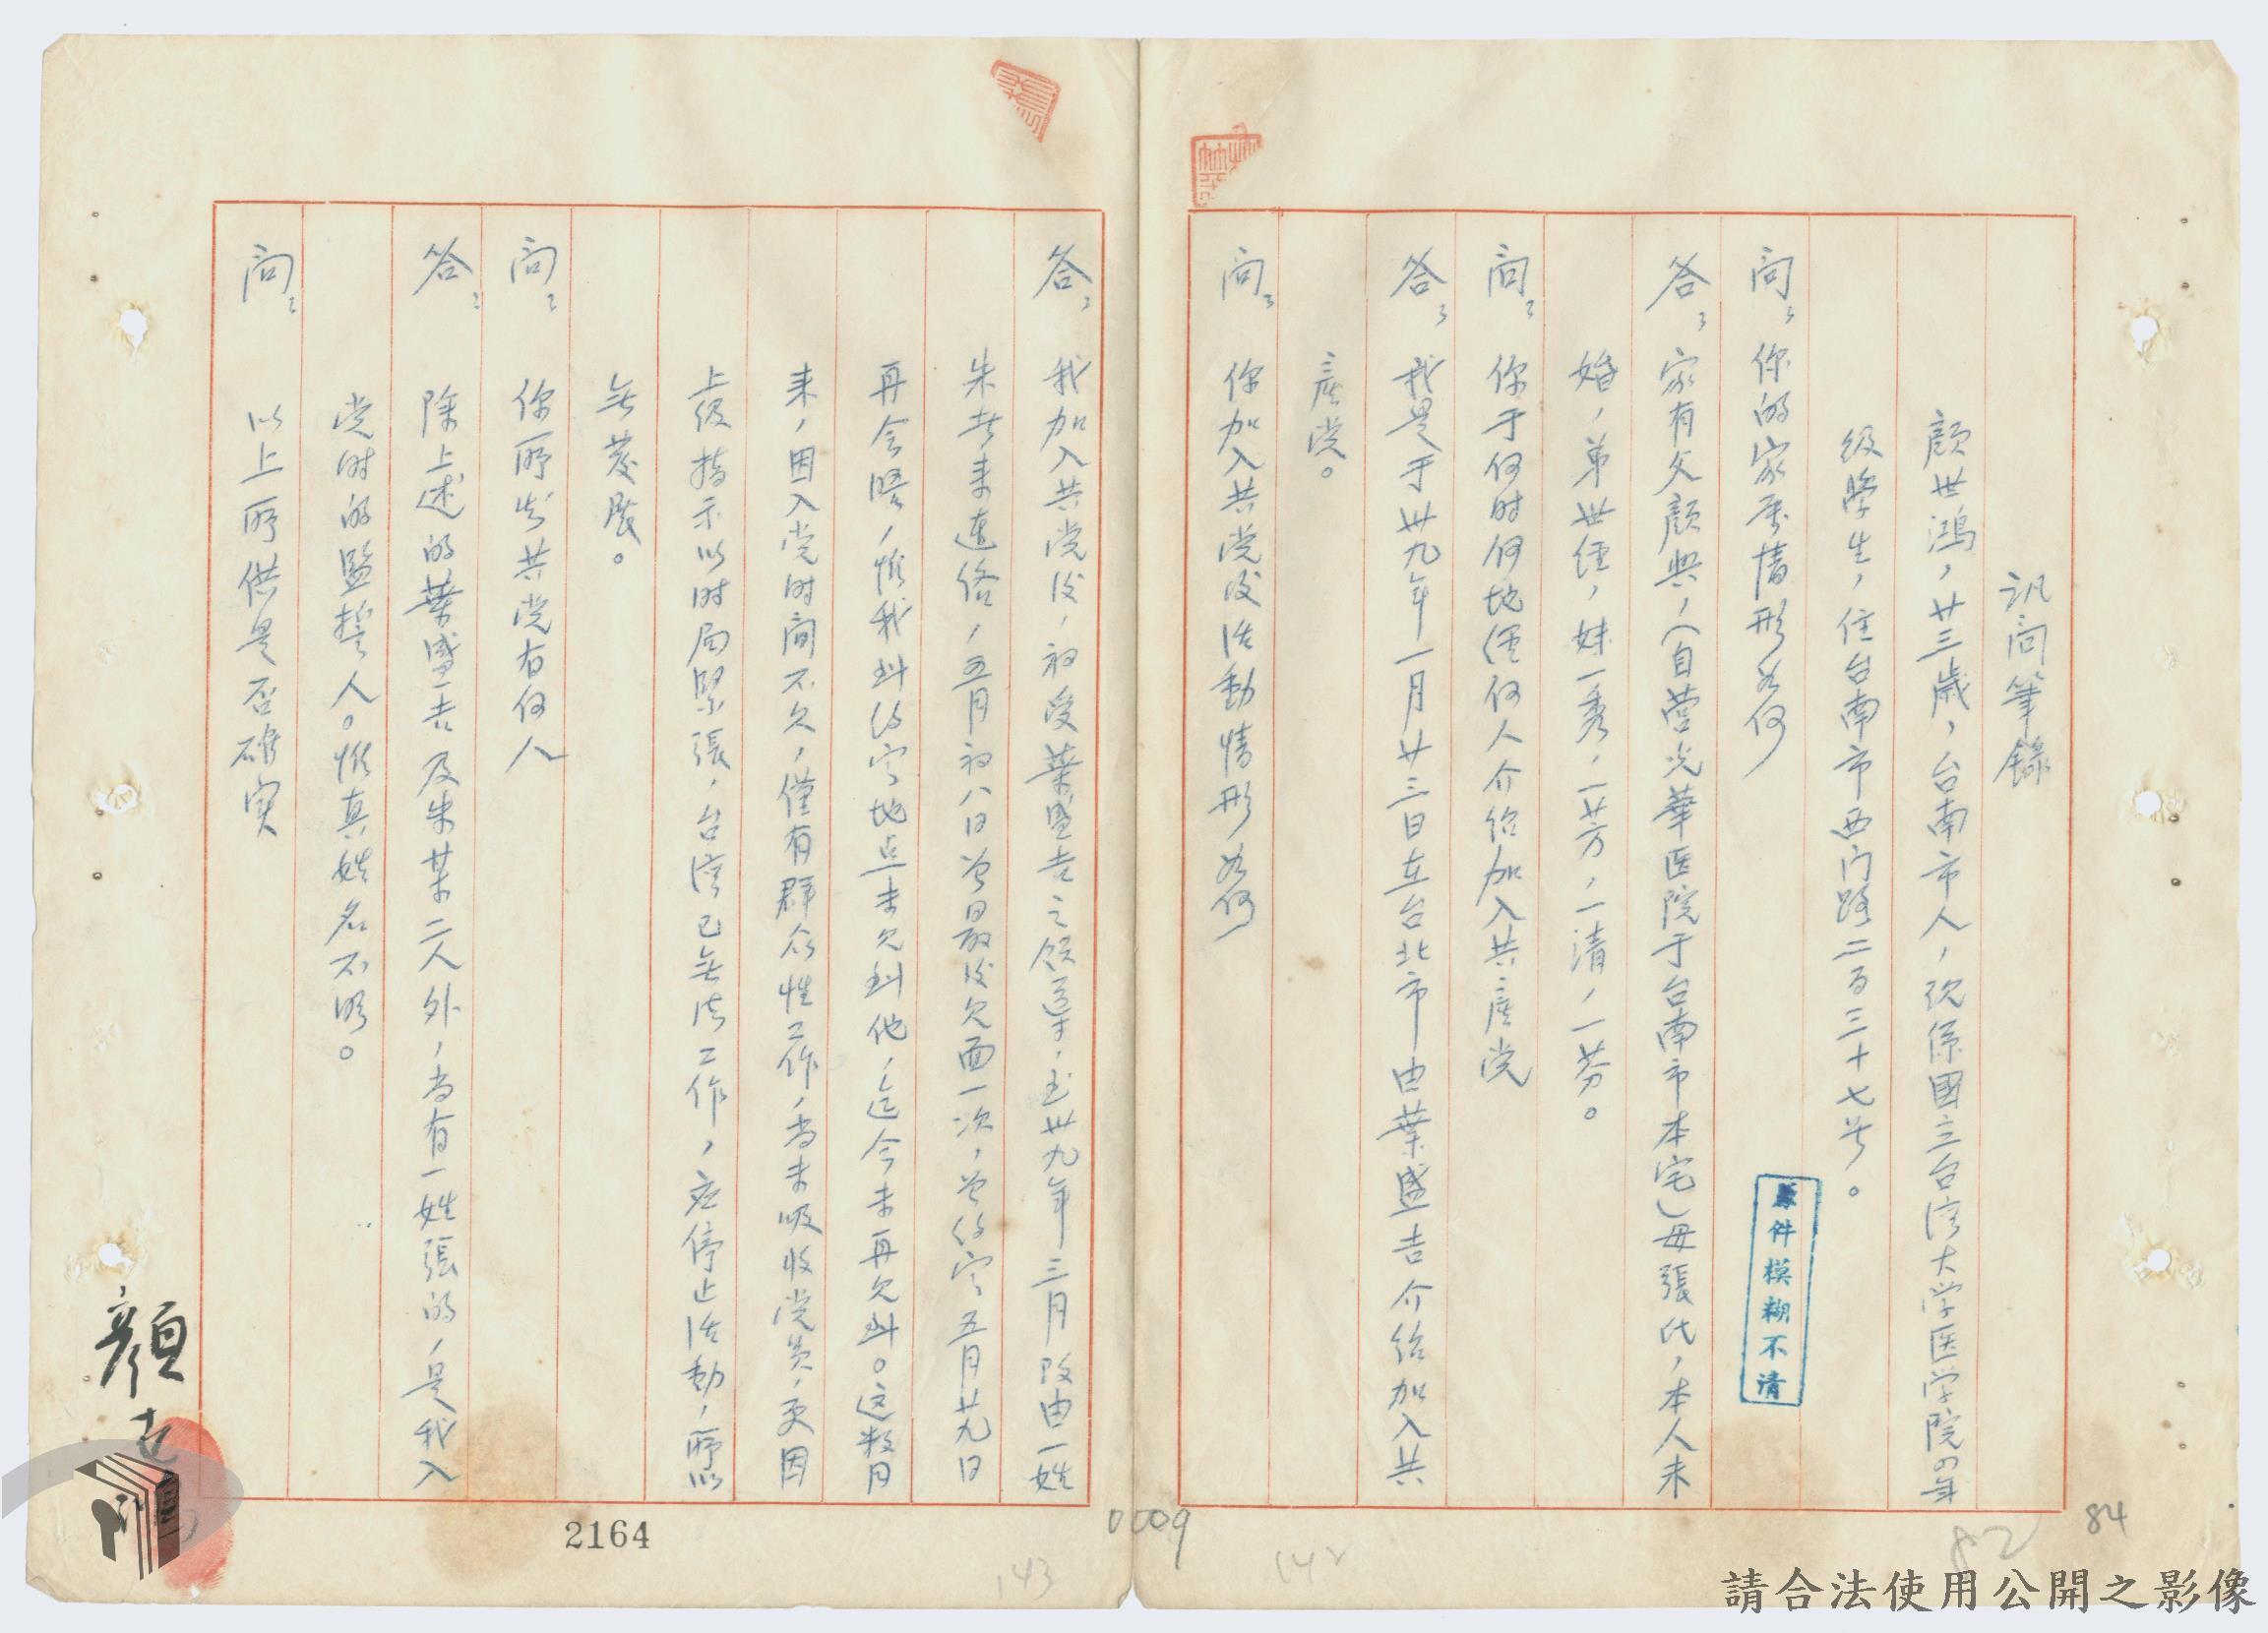 訊问筆錄
顏世鴻，廿三歲，台南市人，現係國立台湾大学医学院の年
级學生，住台南市西门路二百三十七号。
问：你的家庭情形如何
答：家有父顏興，（自营光華医院于台南市本宅）母張氏，本人未
婚，弟世经，妹一秀，一芳，一清，一芬。
问：你于何时何地经何人介绍加入共產党
答：我是于卅九年一月廿三日在台北市由葉盛吉介绍加入共
產党。
问：你加入共党后活動情形如何
答：我加入共党后，初受葉盛吉之领导，至卅九年三月改由一姓
朱者来連络，五月初八日曾最后见面一次，曾约定五月廿九日
再会晤，惟我到约定地点未见到他，迄今未再见到。这数月
来，因入党时间不久，僅有群众性工作，尚未吸收党员，更因
上级指示以时局緊張，台湾已无法工作，应停止活動，所以
无发展。
问：你所知共党有何人
答：除上述的葉盛吉及朱某二人外，尚有一姓張的，是我入
党时的監誓人。惟真姓名不明。
问：以上所供是否確实
顏世
原件模糊不清
2164
0009
143
142
82
84
請合法使用公開之影像